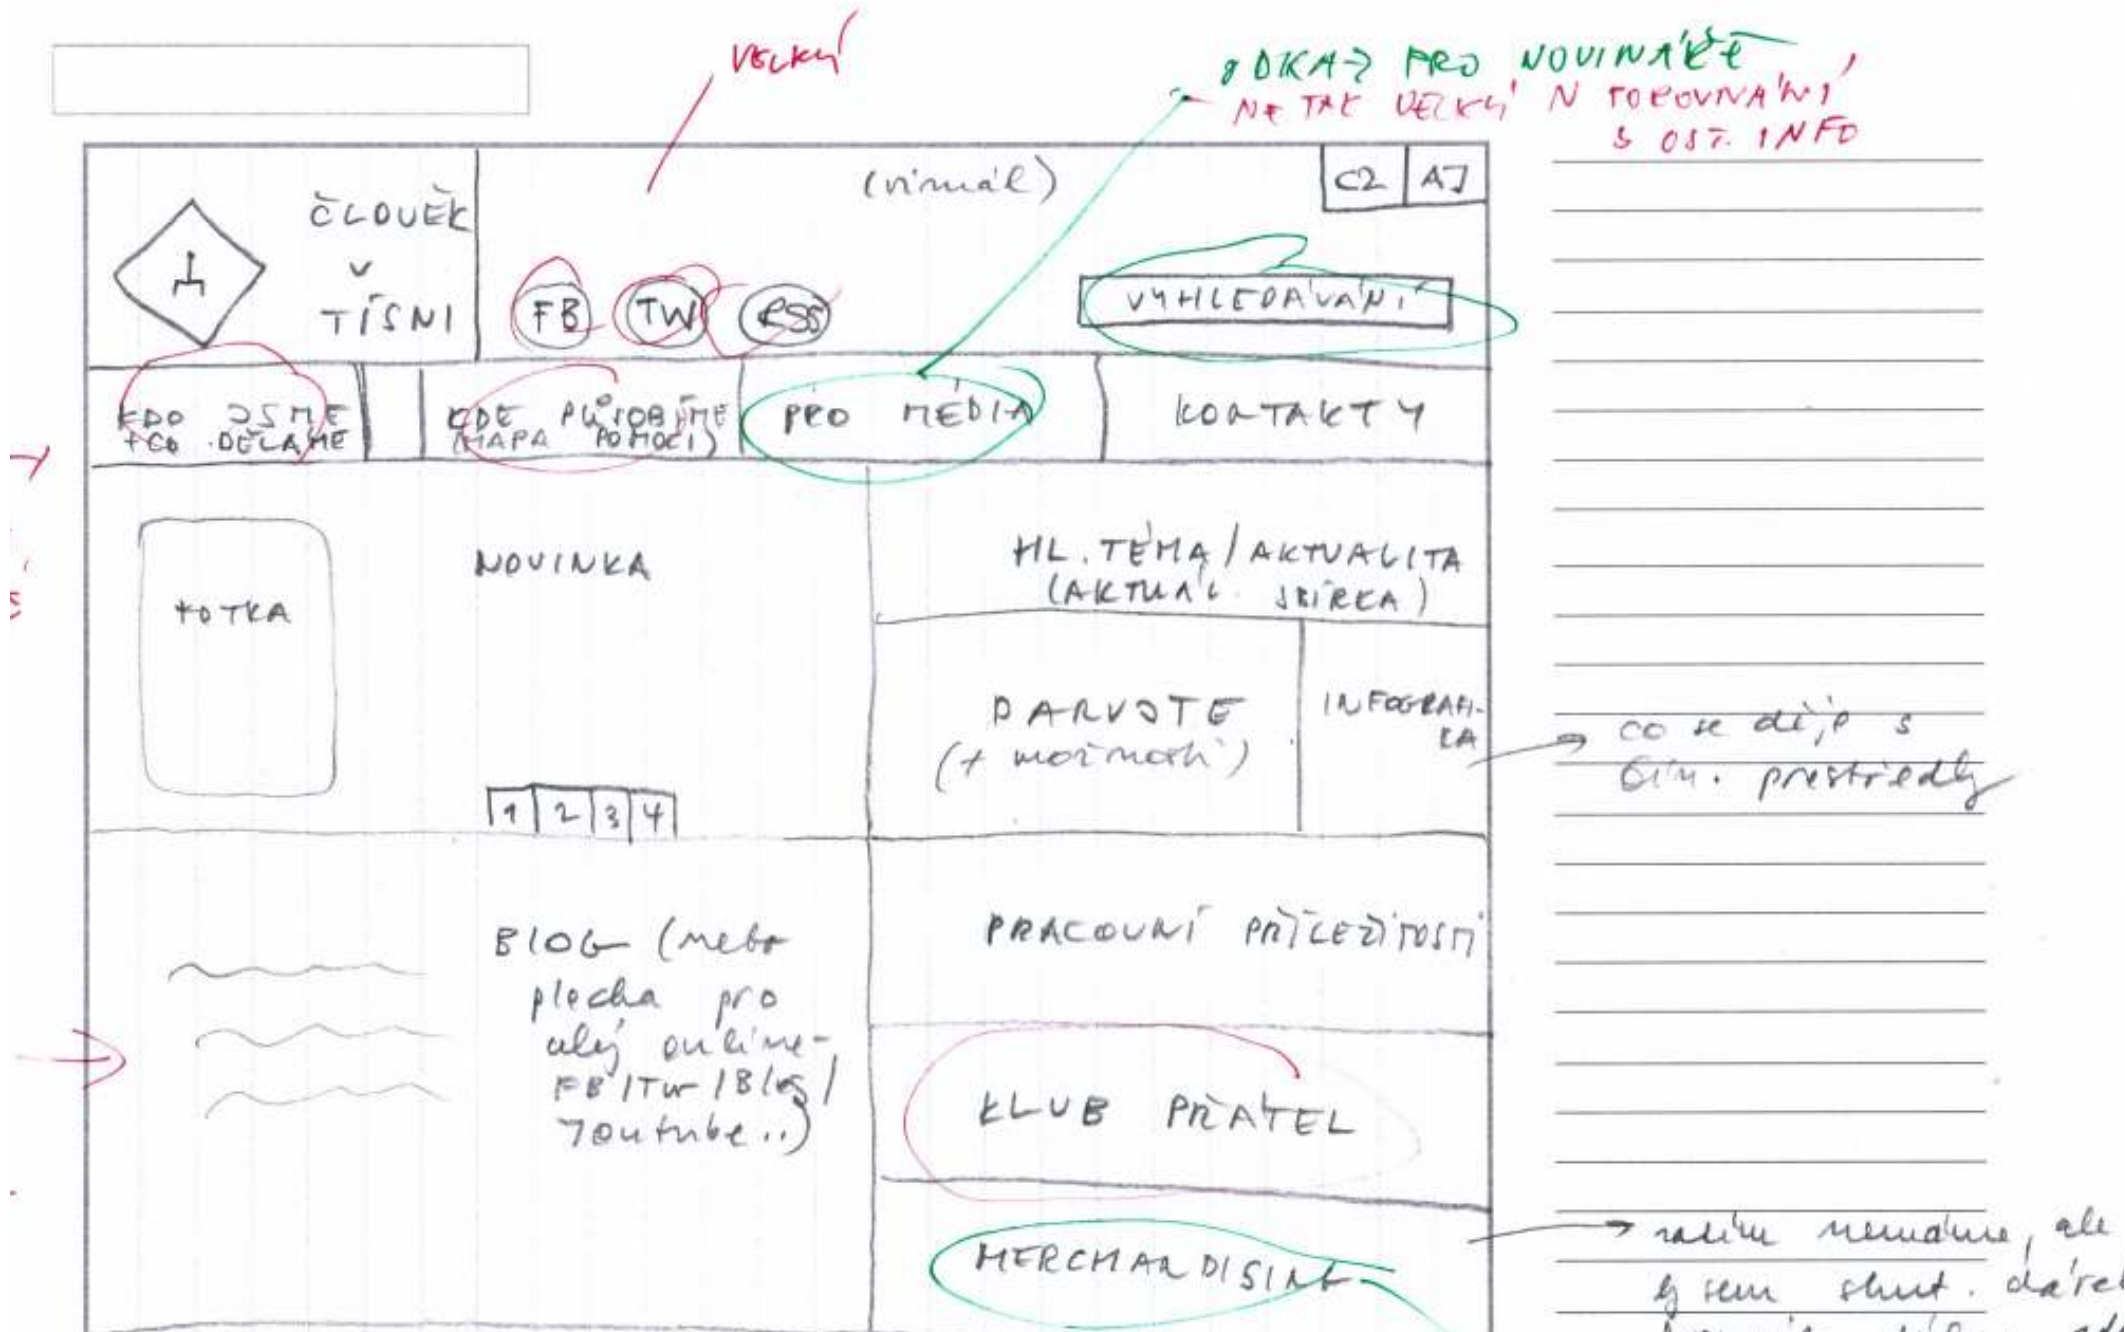 VELKÝ
ODKAZ PRO NOVINÁŘE
NE TAK VELKÝ V POROVNÁNÍ
S OST. INFO
(vizuál)
CZ AJ
ČLOVĚK
V
TÍSNI
FB TW RSS
VYHLEDÁVÁNÍ
KDO JSME
+ CO DĚLÁME
KDE PŮSOBÍME
(MAPA POMOCI)
PRO MÉDIA
KONTAKTY
FOTKA
NOVINKA
1 2 3 4
HL. TÉMA / AKTUALITA
(AKTUÁL. SBÍRKA)
DARUJTE
(+ možnosti)
INFOGRAFI-
KA
co se děje s
fin. prostředky
BLOG (nebo
plocha pro
celý online -
FB / Tw / Blog /
Youtube..)
PRACOVNÍ PŘÍLEŽITOSTI
KLUB PŘÁTEL
MERCHANDISING
zatím nemáme, ale